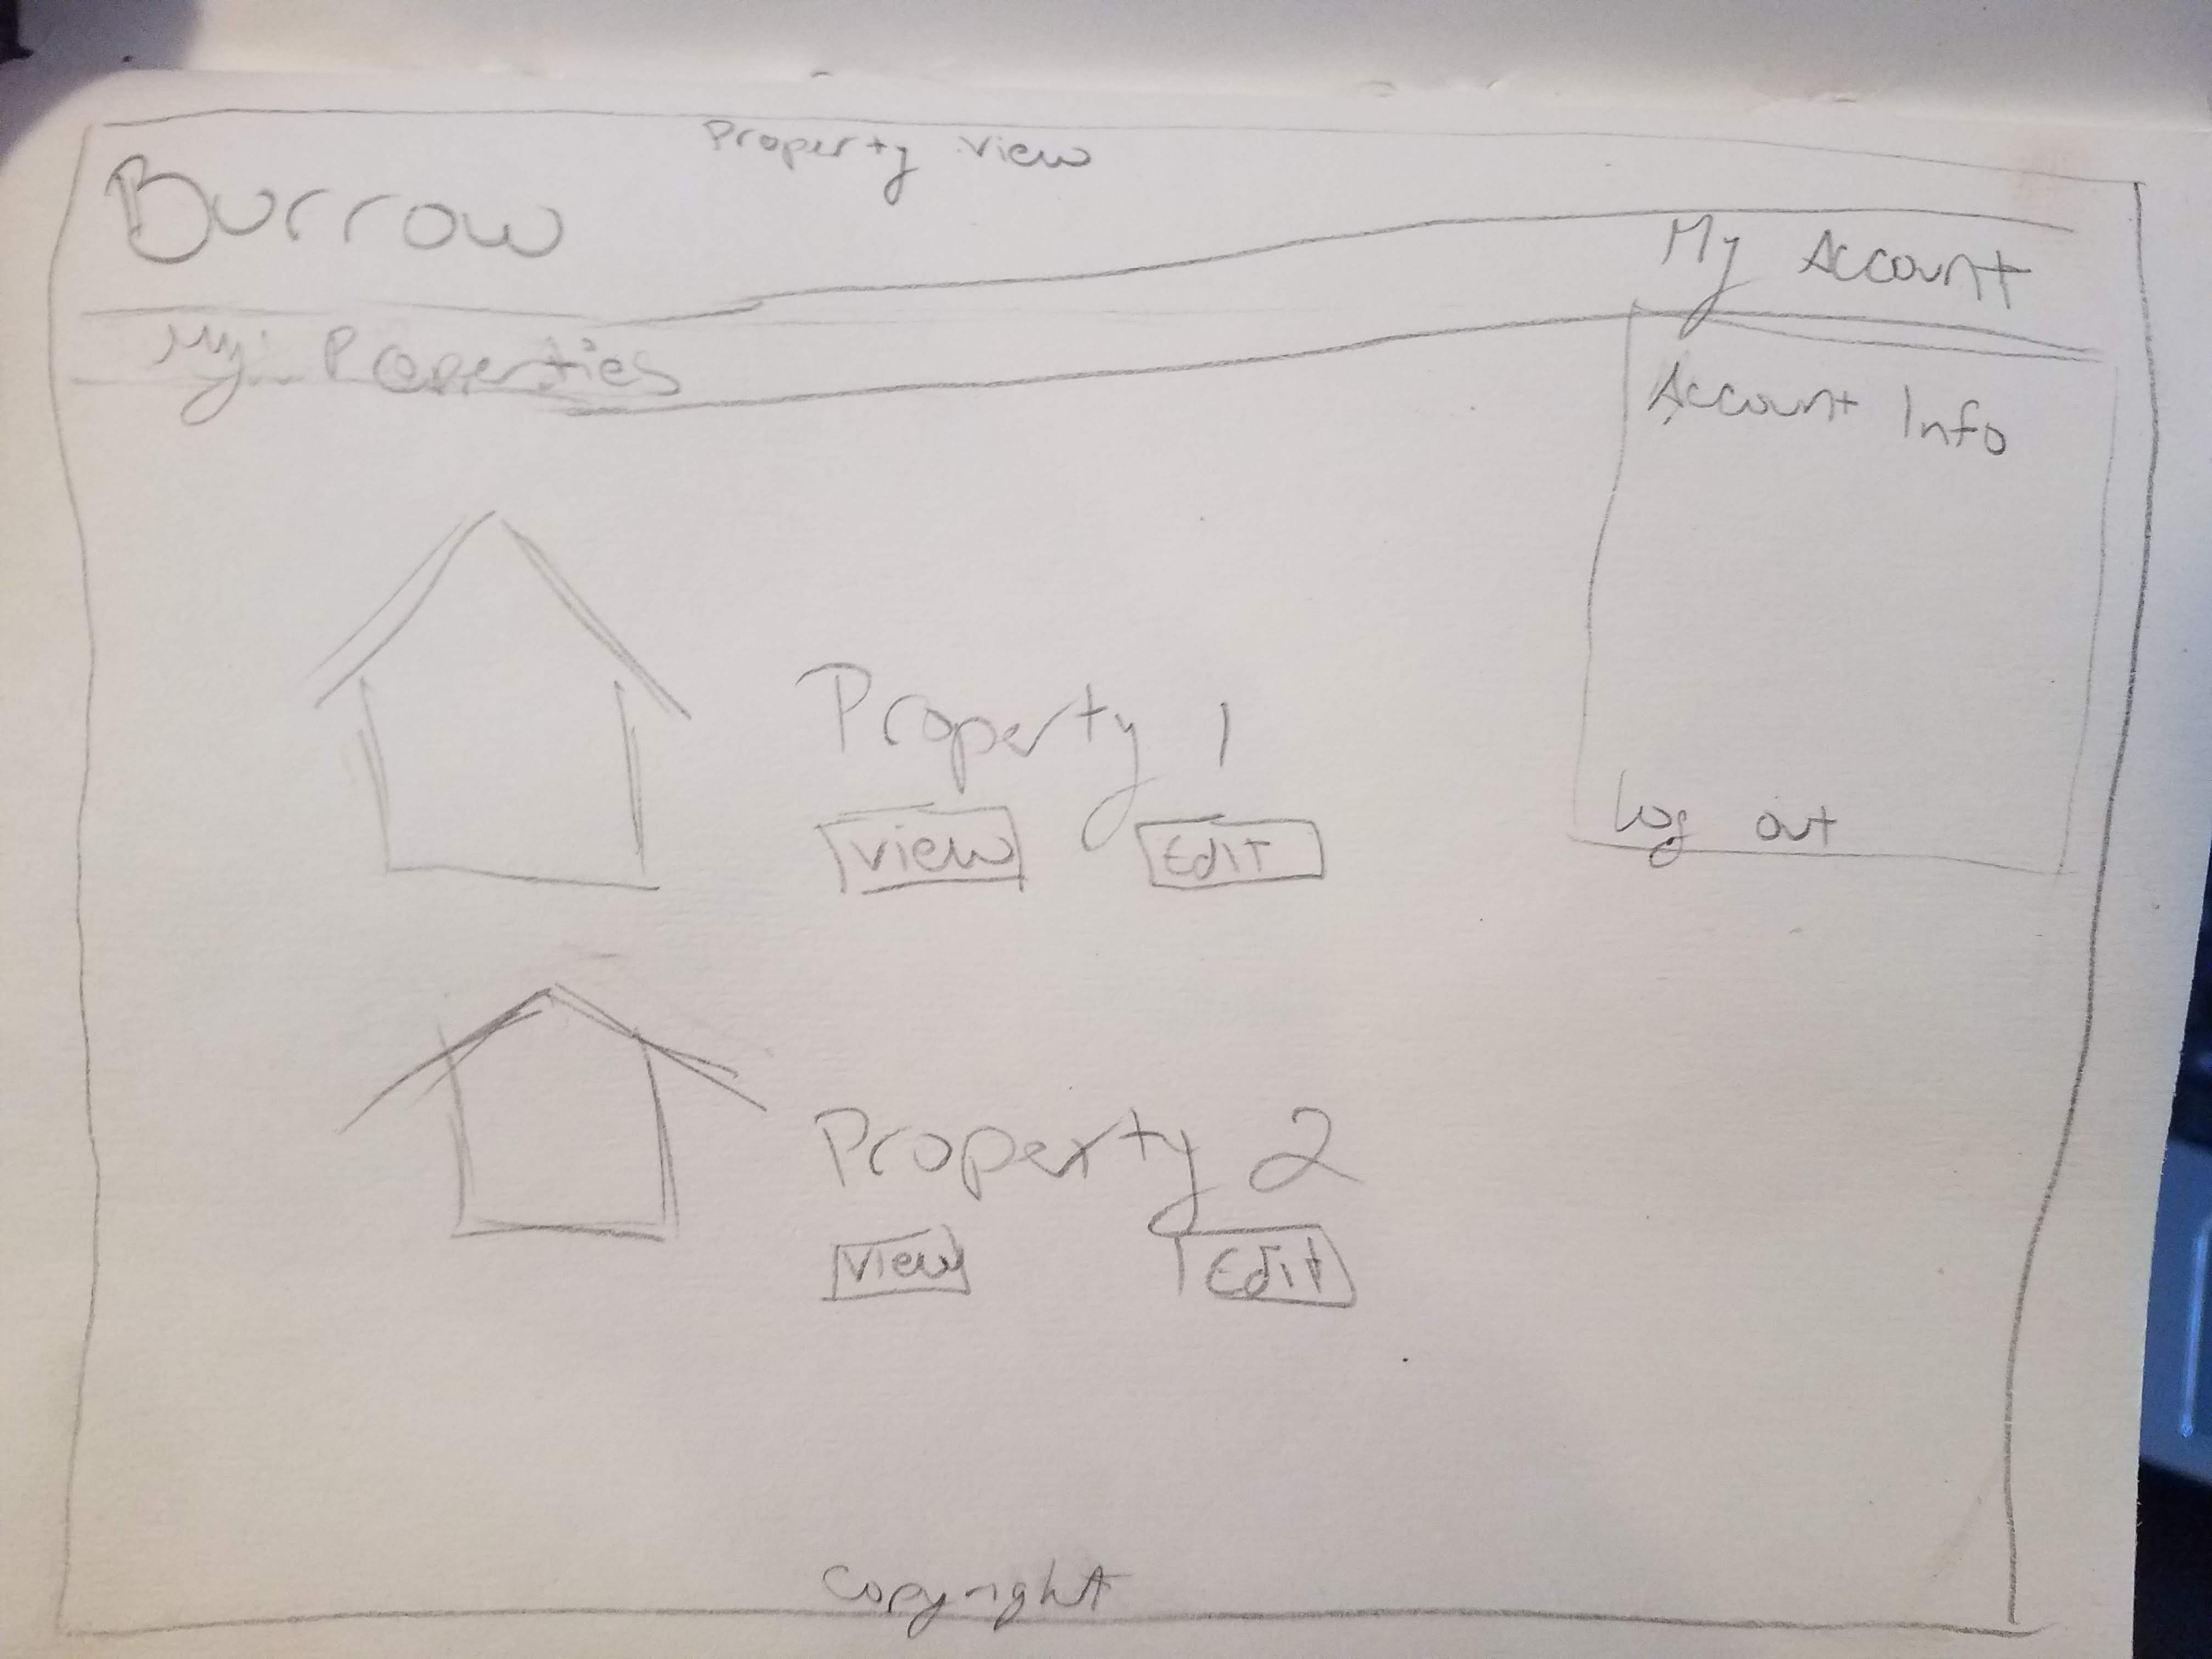 Property view
Burrow
My Account
My Properties
Account Info
Property 1
View
Edit
Log out
Property 2
View
Edit
Copyright